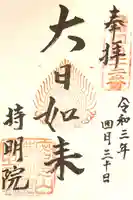 奉拝
令和三年
四月三十日
大日如来
持明院